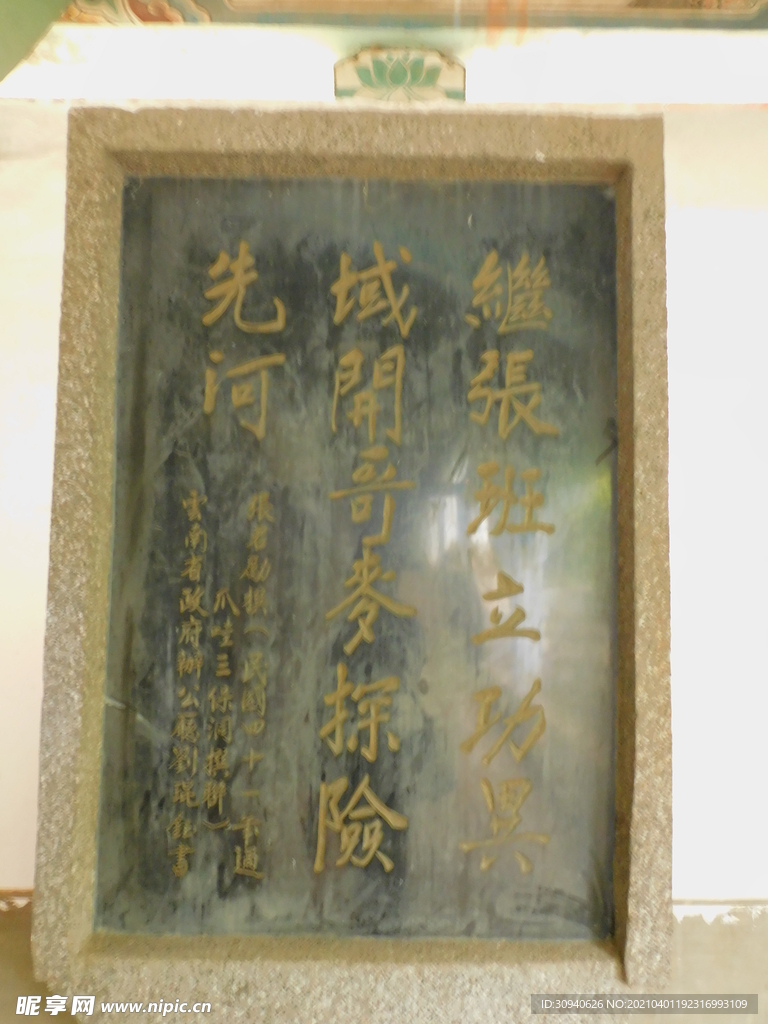 繼張班立功異
域開哥麥探險
先河
張君勱撰（民國四十一年過
爪哇三保洞撰聯）
雲南省政府辦公廳劉琨書
昵享网 www.nipic.cn
ID:30940626 NO:20210401192316993109